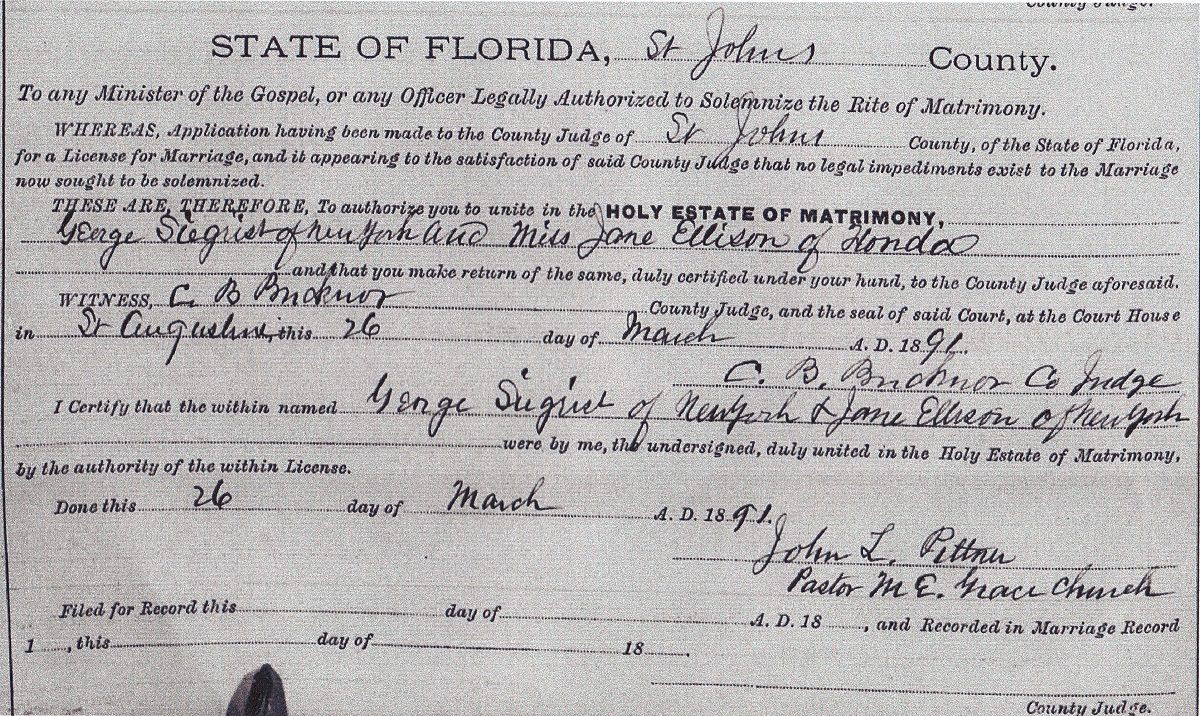 County Judge.
STATE OF FLORIDA, St Johns County.
To any Minister of the Gospel, or any Officer Legally Authorized to Solemnize the Rite of Matrimony.
WHEREAS, Application having been made to the County Judge of St Johns County, of the State of Florida,
for a License for Marriage, and it appearing to the satisfaction of said County Judge that no legal impediments exist to the Marriage
now sought to be solemnized.
THESE ARE, THEREFORE, To authorize you to unite in the HOLY ESTATE OF MATRIMONY,
George Siegrist of New York and Miss Jane Ellison of Florida
and that you make return of the same, duly certified under your hand, to the County Judge aforesaid.
WITNESS, C. B Bucknor County Judge, and the seal of said Court, at the Court House
in St Augustine, this 26 day of March A. D. 1891.
C. B. Bucknor Co Judge
I Certify that the within named George Siegrist of New York & Jane Ellison of New York
were by me, the undersigned, duly united in the Holy Estate of Matrimony,
by the authority of the within License.
Done this 26 day of March A. D. 1891.
John L. Pittner
Pastor M E. Grace Church
Filed for Record this day of A. D. 18 , and Recorded in Marriage Record
1 , this day of 18 .
County Judge.